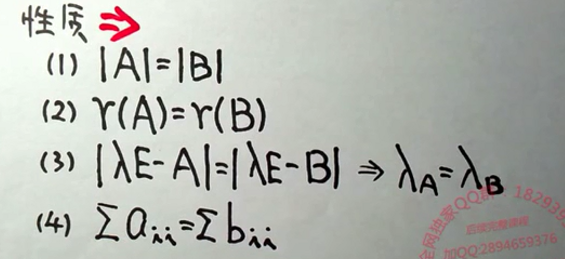 性质 ⇒
(1) |A|=|B|
(2) r(A)=r(B)
(3) |λE-A|=|λE-B| ⇒ λ_A=λ_B
(4) Σaᵢᵢ=Σbᵢᵢ
全网独家QQ群 18293
后续完整课程
加QQ:2894659376